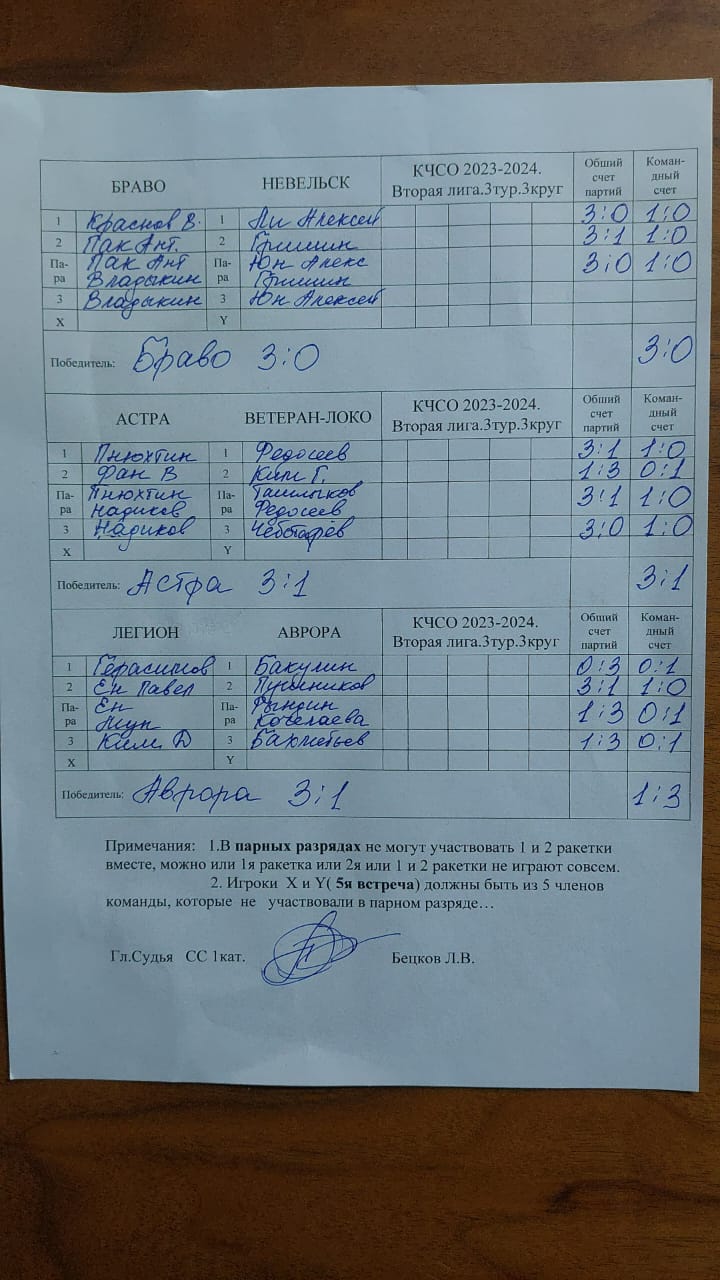 БРАВО НЕВЕЛЬСК КЧСО 2023-2024. Вторая лига.3тур.3круг Обший счет партий Коман-дный счет
1 Краснов В. 1 Ли Алексей 3:0 1:0
2 Пак Ант. 2 Гришин 3:1 1:0
Па-ра Пак Ант Па-ра Юн Алекс 3:0 1:0
Владыкин Гришин
3 Владыкин 3 Юн Алексей
X Y
Победитель: Браво 3:0 3:0
АСТРА ВЕТЕРАН-ЛОКО КЧСО 2023-2024. Вторая лига.3тур.3круг Обший счет партий Коман-дный счет
1 Пнюхтин 1 Федосеев 3:1 1:0
2 Фан В 2 Ким Г. 1:3 0:1
Па-ра Пнюхтин Па-ра Ташлыков 3:1 1:0
Надиков Федосеев
3 Надиков 3 Чеботарёв 3:0 1:0
X Y
Победитель: Астра 3:1 3:1
ЛЕГИОН АВРОРА КЧСО 2023-2024. Вторая лига.3тур.3круг Обший счет партий Коман-дный счет
1 Герасимов 1 Бакулин 0:3 0:1
2 Ен Павел 2 3:1 1:0
Па-ра Ен Па-ра Рындин 1:3 0:1
Кочелаева
3 Ким Д 3 Бахметьев 1:3 0:1
X Y
Победитель: Аврора 3:1 1:3
Примечания: 1.В парных разрядах не могут участвовать 1 и 2 ракетки
вместе, можно или 1я ракетка или 2я или 1 и 2 ракетки не играют совсем.
2. Игроки X и Y( 5я встреча) должны быть из 5 членов
команды, которые не участвовали в парном разряде…
Гл.Судья СС 1кат. Бецков Л.В.